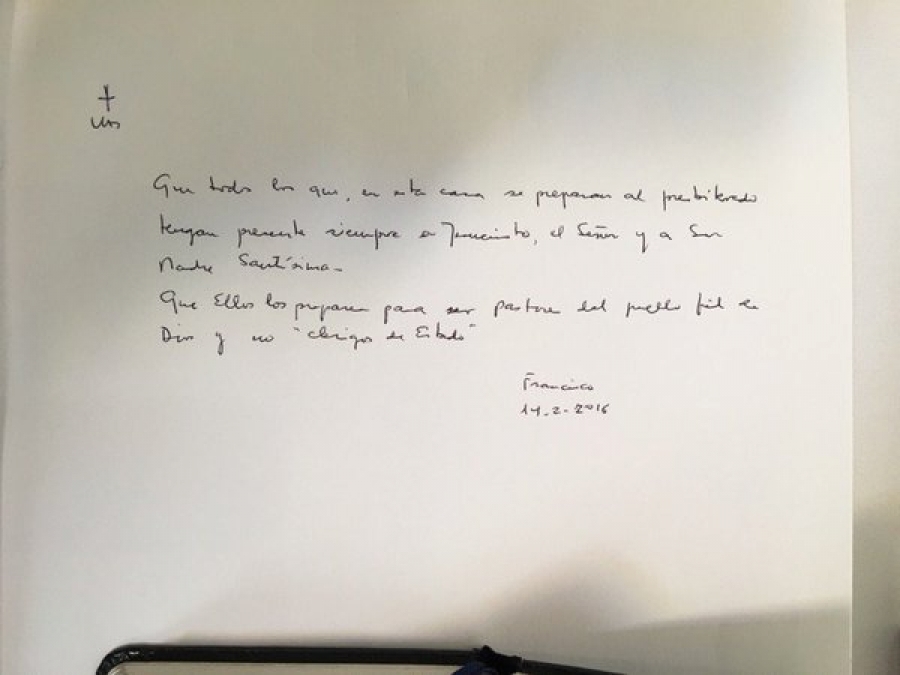 +
Que todos los que, en esta casa se preparan al presbiterado
tengan presente siempre a Jesucristo, el Señor y a Su
Madre Santísima.
Que Ellos los preparen para ser pastores del pueblo fiel de
Dios y no "clérigos de Estado"
Francisco
14.2.2016